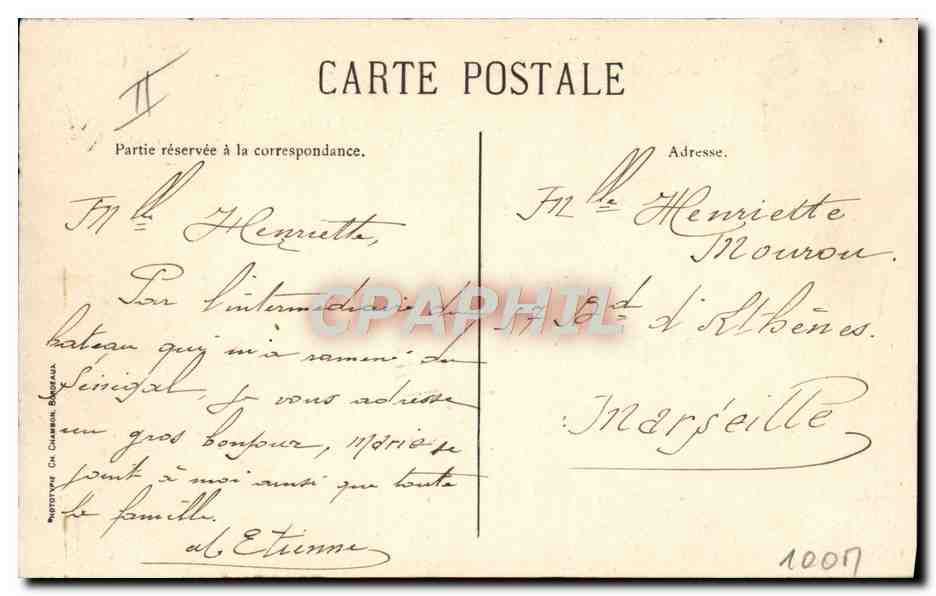 II
CARTE POSTALE
Partie réservée à la correspondance.
Mlle Henriette,
Par l'intermédiaire du
bateau qui m'a ramené du
Sénégal, je vous adresse
un gros bonjour, Marie se
joint à moi ainsi que toute
la famille.
Etienne
PHOTOTYPIE CH. CHAMBON, BORDEAUX
Adresse.
Mlle Henriette
Mourou.
17 Bd d'Athènes.
Marseille
CPAPHIL
100M